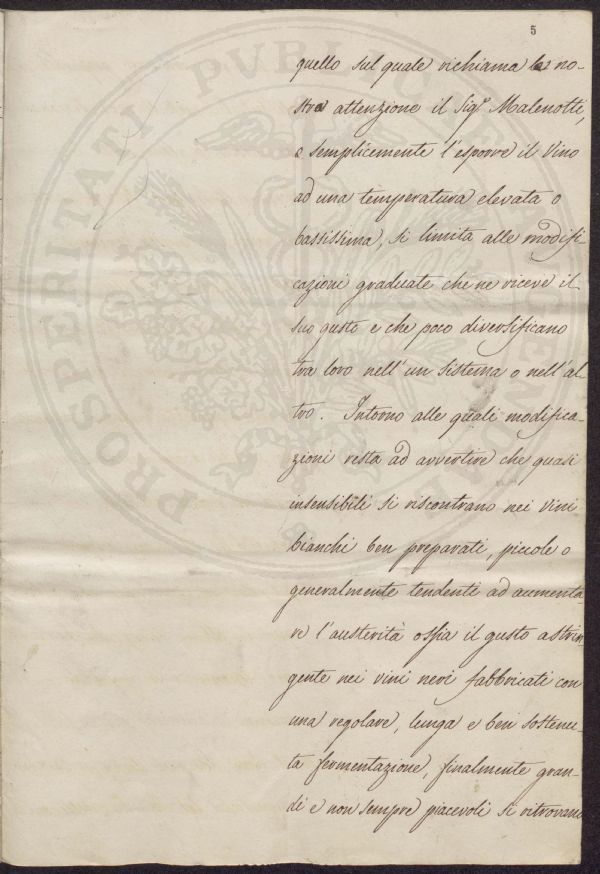 5
quello sul quale richiama la no-
stra attenzione il Sig.r Malenotti,
e semplicemente l'esporre il Vino
ad una temperatura elevata o
bassissima, si limita alle modifi
cazioni graduate che ne riceve il
suo gusto e che poco diversificano
tra loro nell'un sistema o nell'al-
tro. Intorno alle quali modifica-
zioni resta ad avvertire che quasi
insensibili si riscontrano nei vini
bianchi ben preparati, piccole o
generalmente tendenti ad aumenta-
re l'austerità ossia il gusto astrin-
gente nei vini neri fabbricati con
una regolare, lunga e ben sostenu-
ta fermentazione, finalmente gran-
di e non sempre piacevoli si ritrovano
PROSPERITATI PVBLICAE